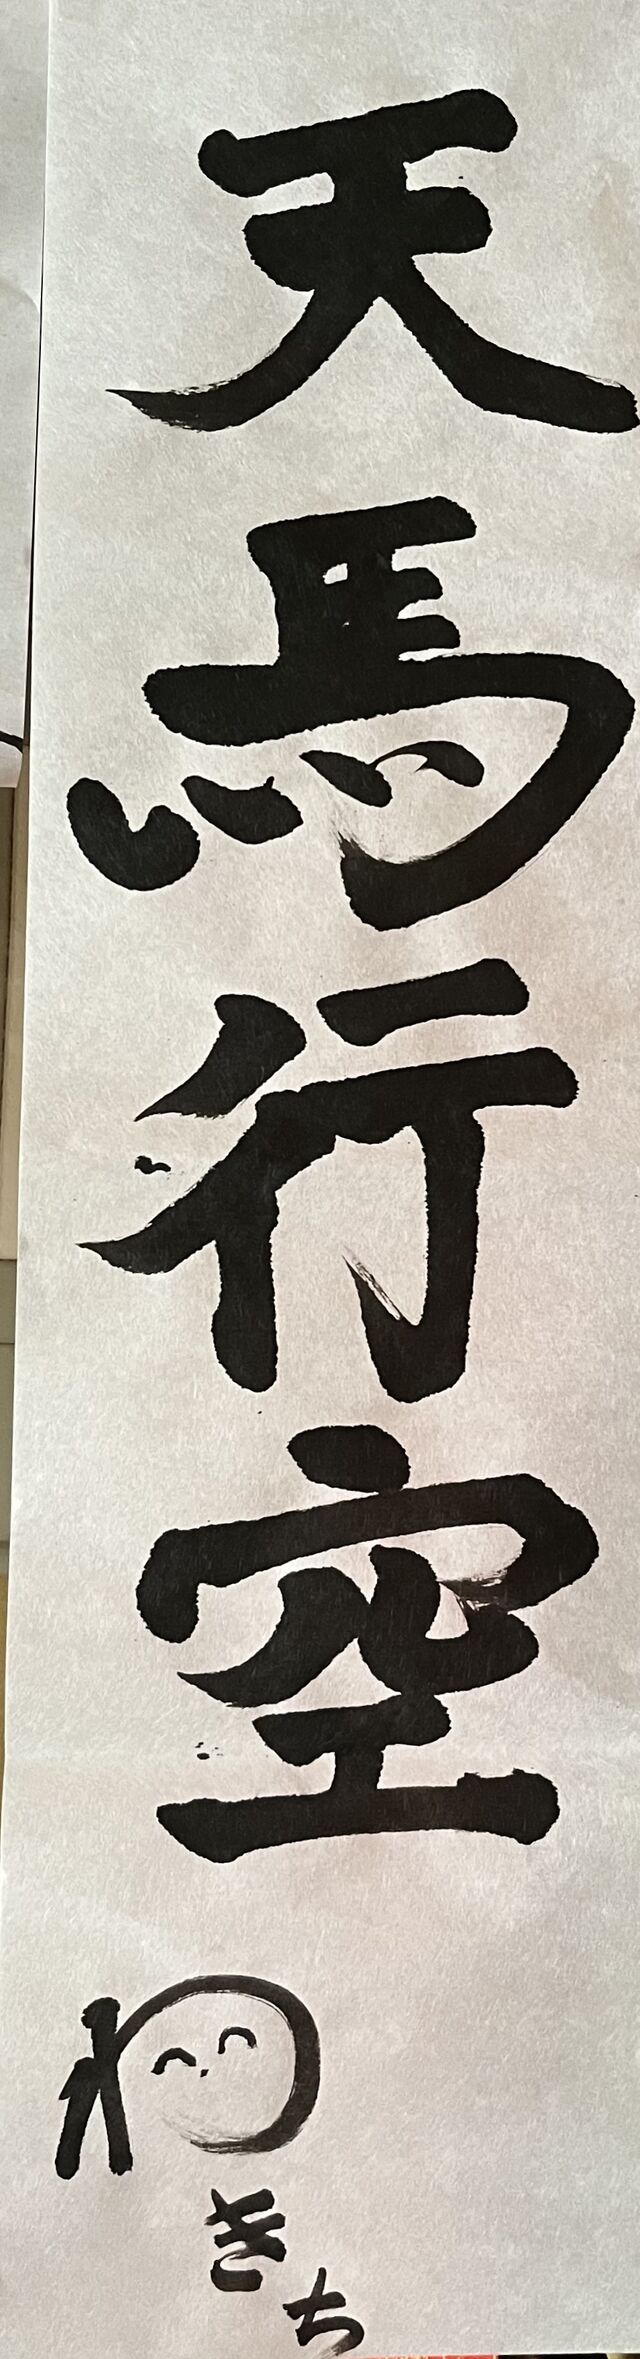 天馬行空
わきち